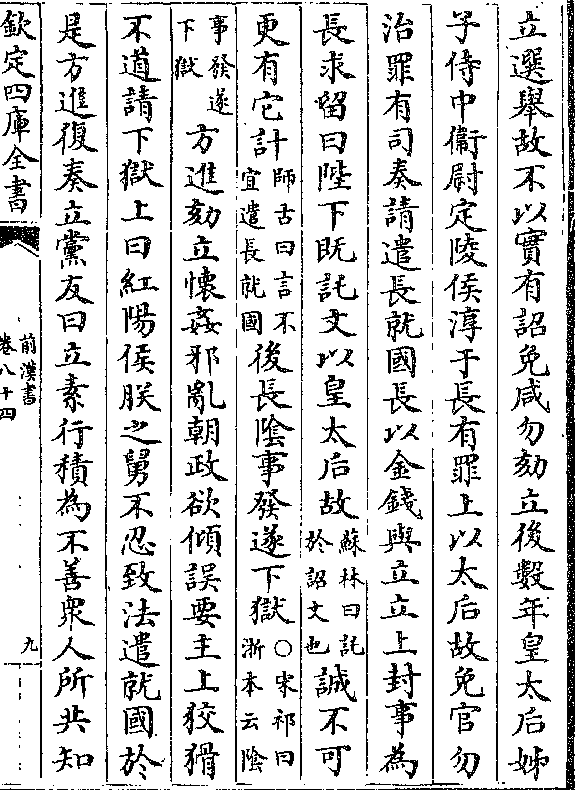 立選舉故不以實有詔免咸勿劾立後數年皇太后姊
子侍中衞尉定陵侯淳于長有罪上以太后故免官勿
治罪有司奏請遣長就國長以金錢與立立上封事為
長求留曰陛下既託文以皇太后故蘇林曰託於詔文也誠不可
更有它計師古曰言不宜遣長就國後長陰事發遂下獄○宋祁曰浙本云陰
事發遂下獄方進劾立懷姦邪亂朝政欲傾誤要主上狡猾
不道請下獄上曰紅陽侯朕之舅不忍致法遣就國於
是方進復奏立黨友曰立素行積為不善衆人所共知
欽定四庫全書
前漢書
卷八十四
九